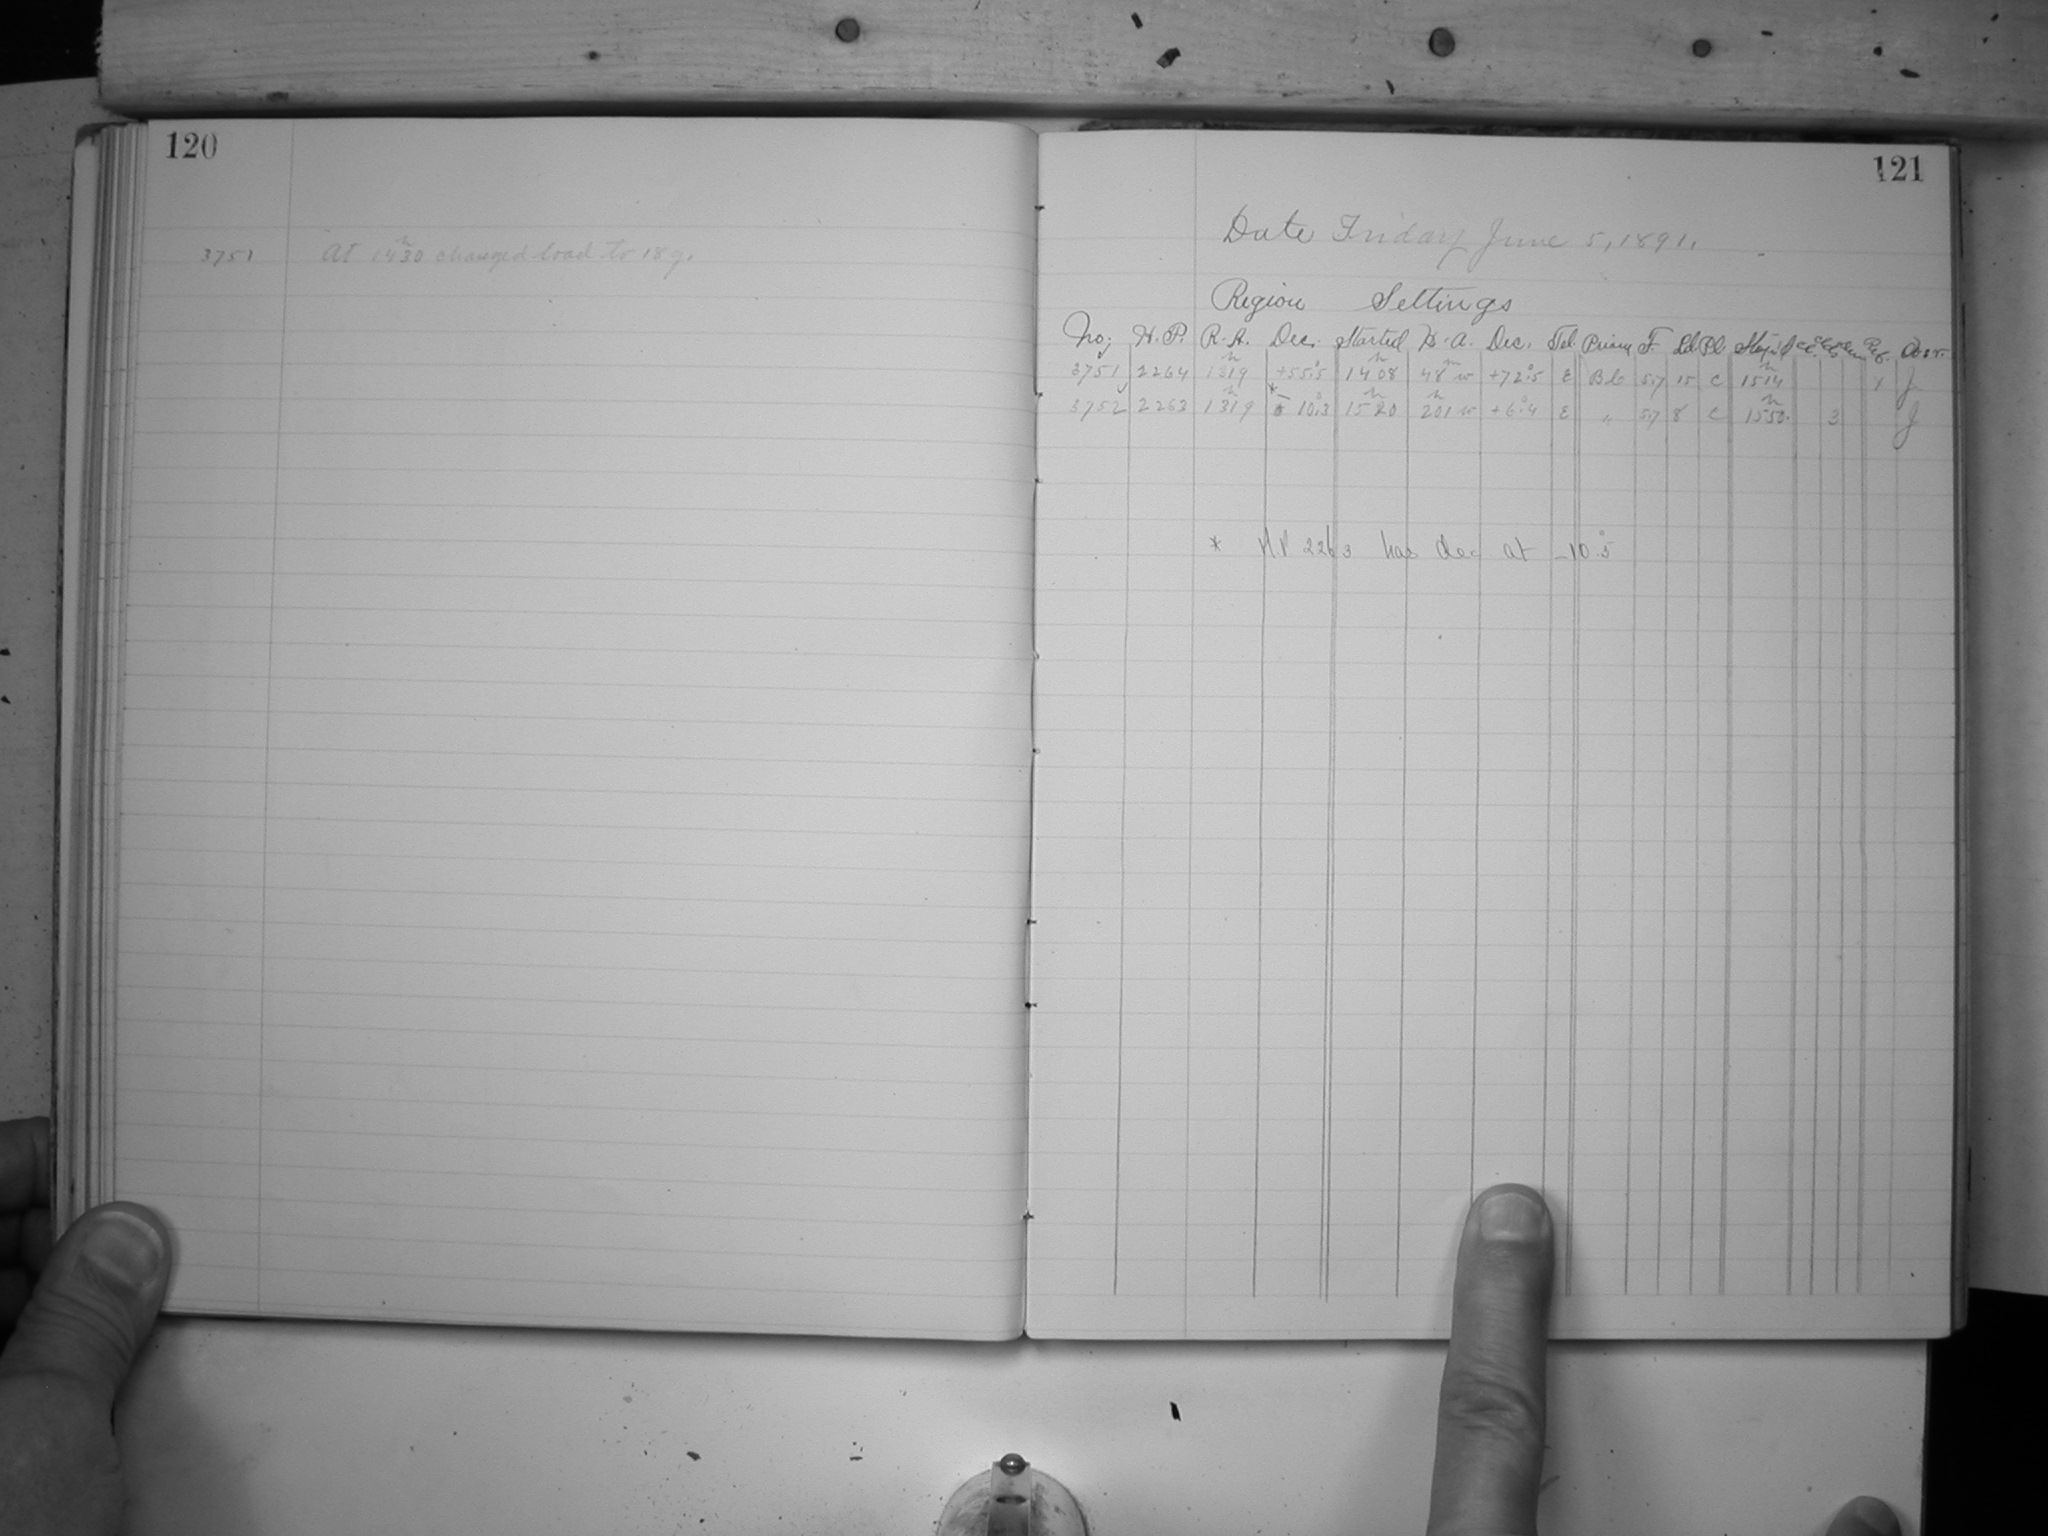 120
3751 At 14ʰ30 changed load to 18 g.
121
Date Friday June 5, 1891.
Region Settings
No. H.P. R.A. Dec. Started H.A. Dec. Tel. Prism F. Ld Pl. Stop'd Obsr.
3751 2264 13ʰ19 +55°.5 14ʰ08 48ᵐ w +72°.5 E 57 15 C 15ʰ14 J
3752 2263 13ʰ19 * – 10°.3 15ʰ20 2ʰ01 w +6°.4 E " 57 8 C 15ʰ50. 3 J
* H.P 2263 has dec at –10°.5